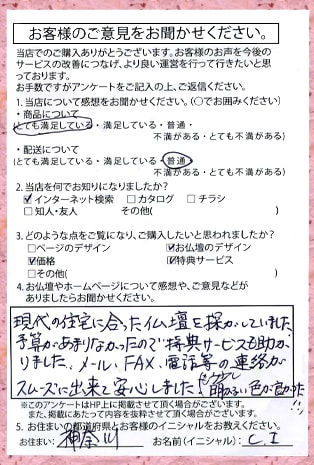 お客様のご意見をお聞かせください。
当店でのご購入ありがとうございます。お客様のお声を今後の
サービスの改善につなげ、より良い運営を行って行きたいと思
っております。
お手数ですがアンケートをご記入の上、ご返信ください。
1. 当店について感想をお聞かせください。(○でお囲みください)
・商品について
(とても満足している・満足している・普通・
不満がある・とても不満がある)
・配送について
(とても満足している・満足している・普通・
不満がある・とても不満がある)
2. 当店を何でお知りになりましたか?
☑インターネット検索 □カタログ □チラシ
□知人・友人 その他( )
3. どのような点をご覧になり、ご購入したいと思われましたか?
□ページのデザイン ☑お仏壇のデザイン
☑価格 ☑特典サービス
□その他( )
4. お仏壇やホームページについて感想や、ご意見などが
ありましたらお聞かせください。
現代の住宅に合った仏壇を探がしていました。
予算があまりなかったので特典サービスも助か
りました、メール、FAX、電話等の連絡が
スムーズに出来て安心しました!
明るい色が
!!!
※このアンケートはHP上に掲載させて頂く場合がございます。
また、掲載にあたって内容を抜粋させて頂く場合がございます。
5. お住いの都道府県とお客様のイニシャルをお教えください。
お住まい: 神奈川 お名前(イニシャル): C.I